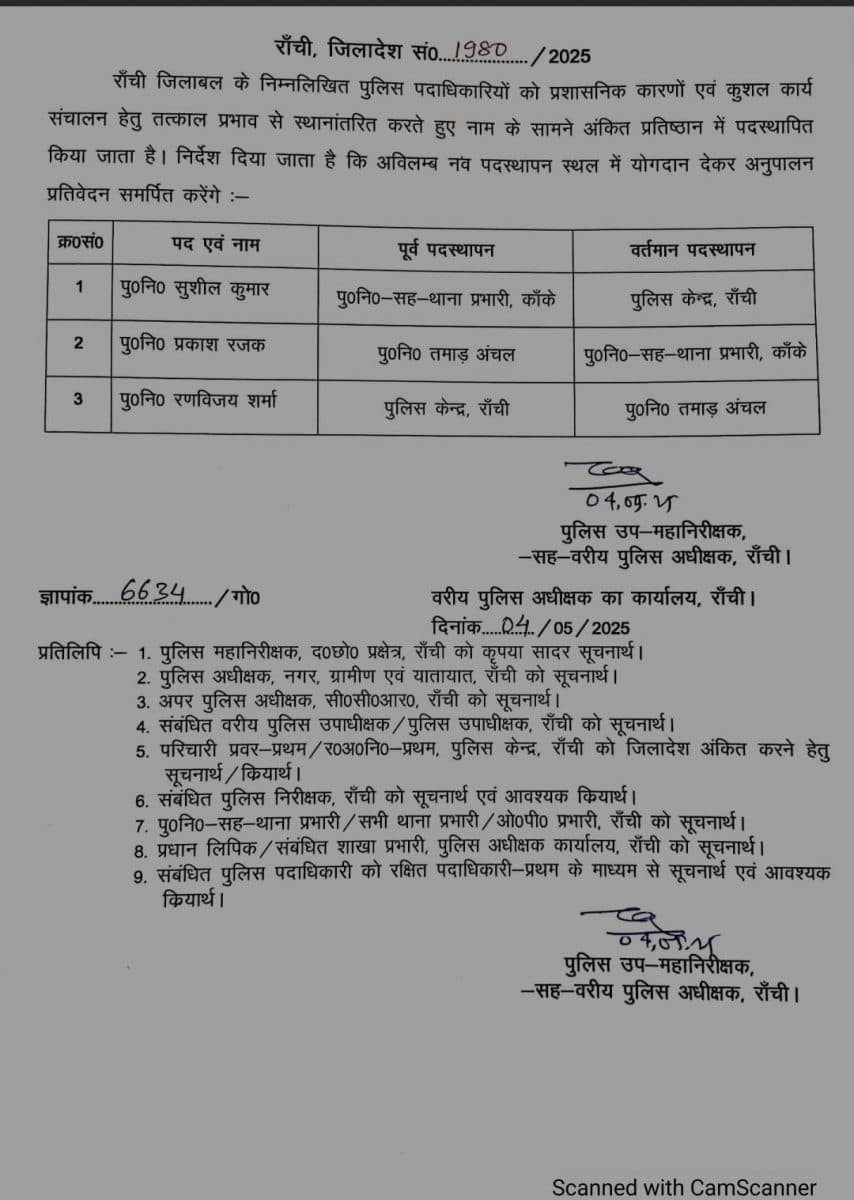 राँची, जिलादेश सं0...1980.../2025
राँची जिलाबल के निम्नलिखित पुलिस पदाधिकारियों को प्रशासनिक कारणों एवं कुशल कार्य
संचालन हेतु तत्काल प्रभाव से स्थानांतरित करते हुए नाम के सामने अंकित प्रतिष्ठान में पदस्थापित
किया जाता है। निर्देश दिया जाता है कि अविलम्ब नव पदस्थापन स्थल में योगदान देकर अनुपालन
प्रतिवेदन समर्पित करेंगे :–
क्र0सं0 पद एवं नाम पूर्व पदस्थापन वर्तमान पदस्थापन
1 पु0नि0 सुशील कुमार पु0नि0–सह–थाना प्रभारी, काँके पुलिस केन्द्र, राँची
2 पु0नि0 प्रकाश रजक पु0नि0 तमाड़ अंचल पु0नि0–सह–थाना प्रभारी, काँके
3 पु0नि0 रणविजय शर्मा पुलिस केन्द्र, राँची पु0नि0 तमाड़ अंचल
पुलिस उप–महानिरीक्षक,
–सह–वरीय पुलिस अधीक्षक, राँची।
ज्ञापांक...6634.../गो0 वरीय पुलिस अधीक्षक का कार्यालय, राँची।
दिनांक...04../05/2025
प्रतिलिपि :– 1. पुलिस महानिरीक्षक, द0छो0 प्रक्षेत्र, राँची को कृपया सादर सूचनार्थ।
2. पुलिस अधीक्षक, नगर, ग्रामीण एवं यातायात, राँची को सूचनार्थ।
3. अपर पुलिस अधीक्षक, सी0सी0आर0, राँची को सूचनार्थ।
4. संबंधित वरीय पुलिस उपाधीक्षक/पुलिस उपाधीक्षक, राँची को सूचनार्थ।
5. परिचारी प्रवर–प्रथम/र0अ0नि0–प्रथम, पुलिस केन्द्र, राँची को जिलादेश अंकित करने हेतु
सूचनार्थ/कियार्थ।
6. संबंधित पुलिस निरीक्षक, राँची को सूचनार्थ एवं आवश्यक कियार्थ।
7. पु0नि0–सह–थाना प्रभारी/सभी थाना प्रभारी/ओ0पी0 प्रभारी, राँची को सूचनार्थ।
8. प्रधान लिपिक/संबंधित शाखा प्रभारी, पुलिस अधीक्षक कार्यालय, राँची को सूचनार्थ।
9. संबंधित पुलिस पदाधिकारी को रक्षित पदाधिकारी–प्रथम के माध्यम से सूचनार्थ एवं आवश्यक
कियार्थ।
पुलिस उप–महानिरीक्षक,
–सह–वरीय पुलिस अधीक्षक, राँची।
Scanned with CamScanner